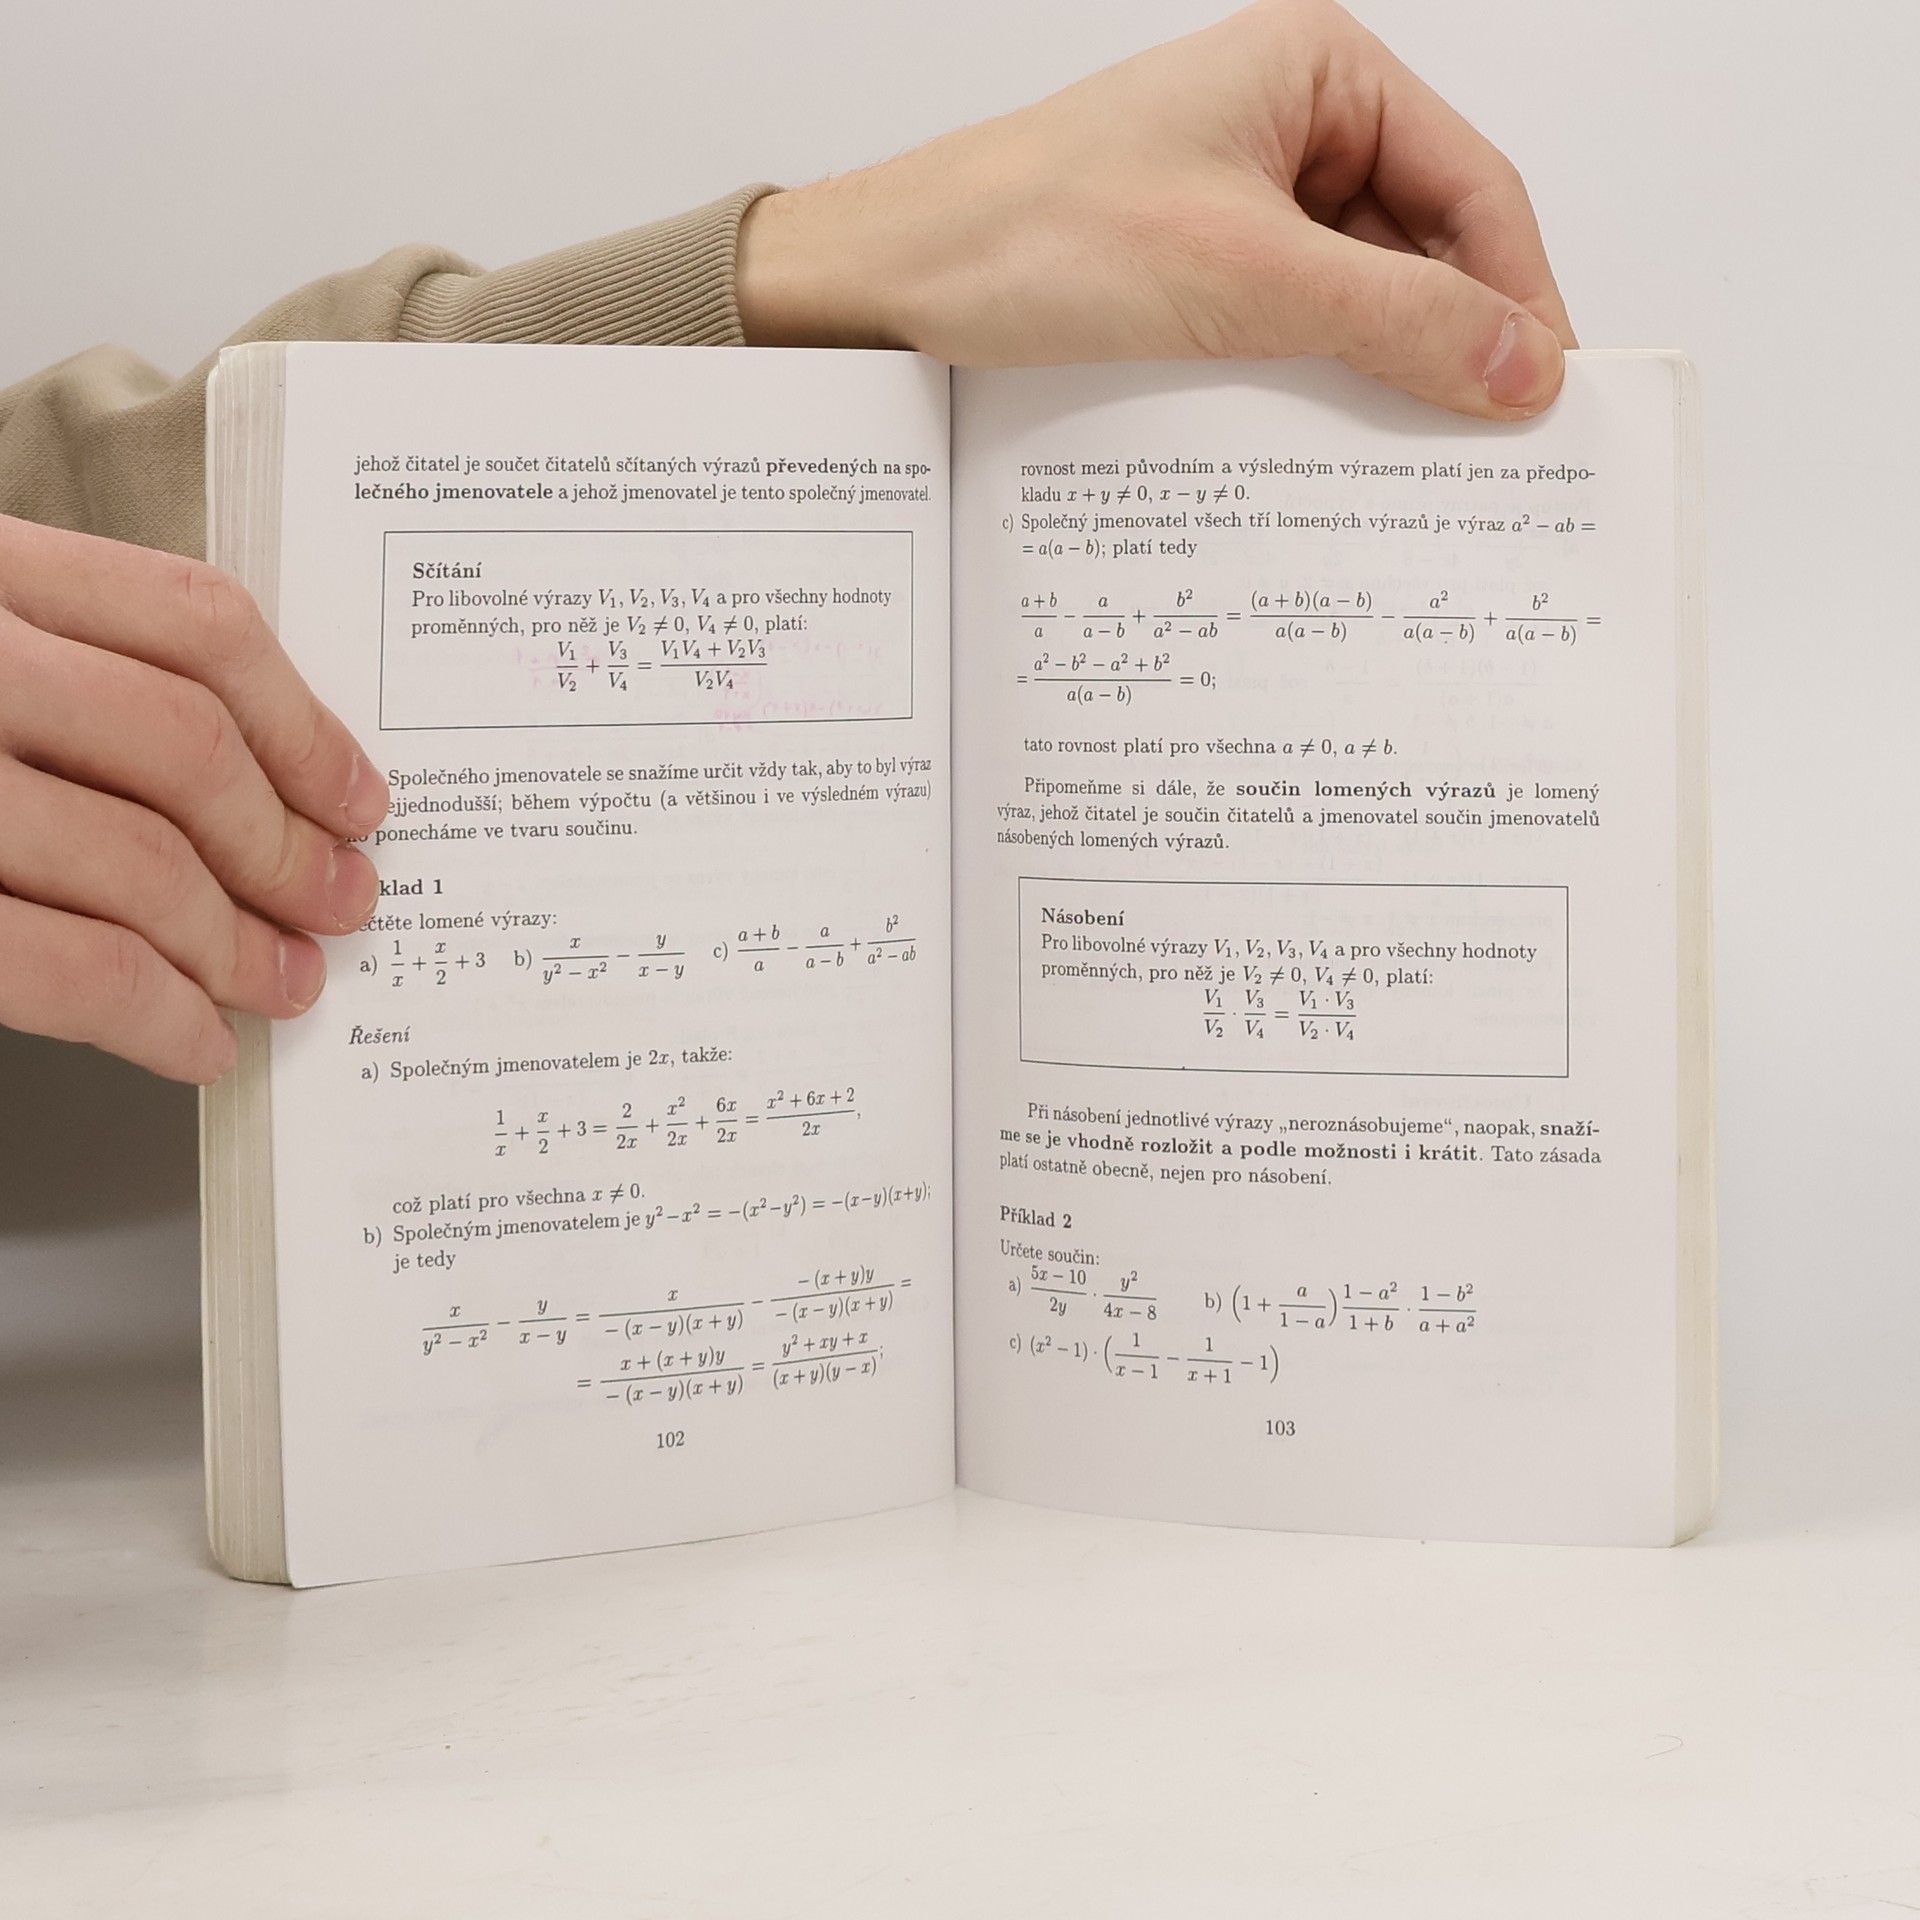 jehož čitatel je součet čitatelů sčítaných výrazů převedených na spo-
lečného jmenovatele a jehož jmenovatel je tento společný jmenovatel.
Sčítání
Pro libovolné výrazy V₁, V₂, V₃, V₄ a pro všechny hodnoty
proměnných, pro něž je V₂ ≠ 0, V₄ ≠ 0, platí:
V₁/V₂ + V₃/V₄ = (V₁V₄ + V₂V₃)/(V₂V₄)
Společného jmenovatele se snažíme určit vždy tak, aby to byl výraz
ejjednodušší; během výpočtu (a většinou i ve výsledném výrazu)
ponecháme ve tvaru součinu.
klad 1
čtěte lomené výrazy:
a) 1/x + x/2 + 3 b) x/(y² − x²) − y/(x − y) c) (a + b)/a − a/(a − b) + b²/(a² − ab)
Řešení
a) Společným jmenovatelem je 2x, takže:
1/x + x/2 + 3 = 2/(2x) + x²/(2x) + 6x/(2x) = (x² + 6x + 2)/(2x),
což platí pro všechna x ≠ 0.
b) Společným jmenovatelem je y² − x² = −(x² − y²) = −(x−y)(x+y);
je tedy
x/(y² − x²) − y/(x − y) = x/(− (x − y)(x + y)) − (− (x + y)y)/(− (x − y)(x + y)) =
= (x + (x + y)y)/(− (x − y)(x + y)) = (y² + xy + x)/((x + y)(y − x));
102
rovnost mezi původním a výsledným výrazem platí jen za předpo-
kladu x + y ≠ 0, x − y ≠ 0.
c) Společný jmenovatel všech tří lomených výrazů je výraz a² − ab =
= a(a − b); platí tedy
(a + b)/a − a/(a − b) + b²/(a² − ab) = ((a + b)(a − b))/(a(a − b)) − a²/(a(a − b)) + b²/(a(a − b)) =
= (a² − b² − a² + b²)/(a(a − b)) = 0;
tato rovnost platí pro všechna a ≠ 0, a ≠ b.
Připomeňme si dále, že součin lomených výrazů je lomený
výraz, jehož čitatel je součin čitatelů a jmenovatel součin jmenovatelů
násobených lomených výrazů.
Násobení
Pro libovolné výrazy V₁, V₂, V₃, V₄ a pro všechny hodnoty
proměnných, pro něž je V₂ ≠ 0, V₄ ≠ 0, platí:
V₁/V₂ · V₃/V₄ = (V₁ · V₃)/(V₂ · V₄)
Při násobení jednotlivé výrazy „neroznásobujeme“, naopak, snaží-
me se je vhodně rozložit a podle možnosti i krátit. Tato zásada
platí ostatně obecně, nejen pro násobení.
Příklad 2
Určete součin:
a) (5x − 10)/(2y) · y²/(4x − 8) b) (1 + a/(1 − a)) (1 − a²)/(1 + b) · (1 − b²)/(a + a²)
c) (x² − 1) · (1/(x − 1) − 1/(x + 1) − 1)
103